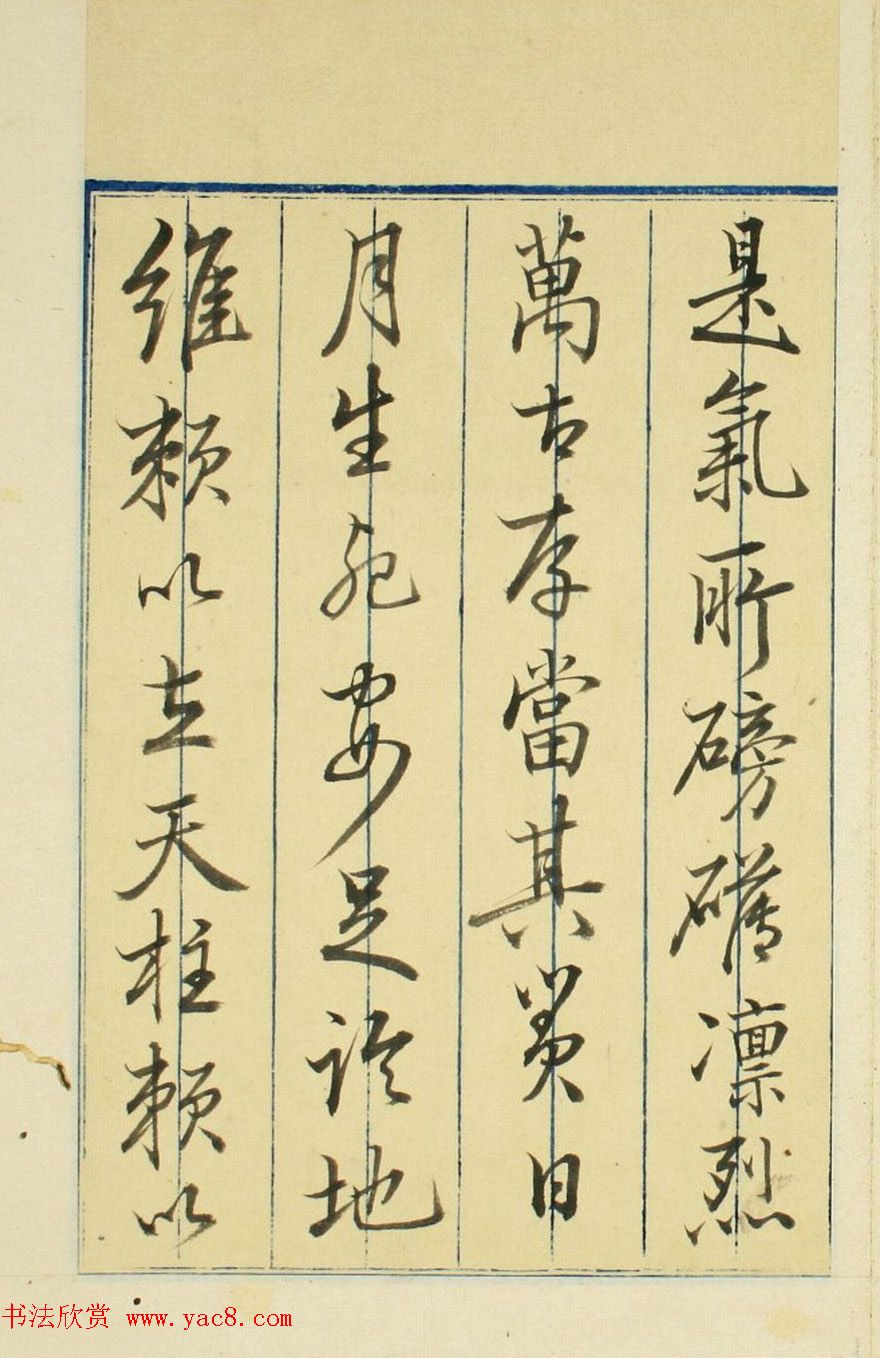 是氣所磅礴凛烈
萬古存當其貫日
月生死安足論地
維賴以立天柱賴以
书法欣赏 www.yac8.com